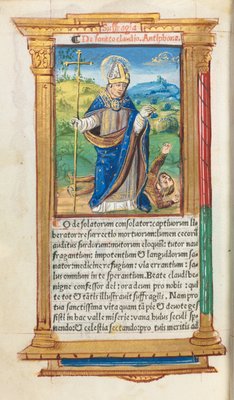 Suffragia
De sancto claudio. Antiphona.
O desolatorum consolator: captiuorum li
berator: resurrectio mortuorum: lumen cecorū
auditus surdorum: mutorum eloquiū: tutor nau
fragantium: impotentium & languidorum sa
nator: medicine refugium: via errantium: sa
lus omnium in te sperantium. Beate claudi be
nigne confessor dei: ora deum pro nobis: q
te tot & tātis illustrauit suffragiis. Nam pro
tua sanctissima vita quam tā pie & deuote ges
sisti in hac valle miserie: vana huius seculi sper
nendo: & celestia sectando: pro tuis meritis ad